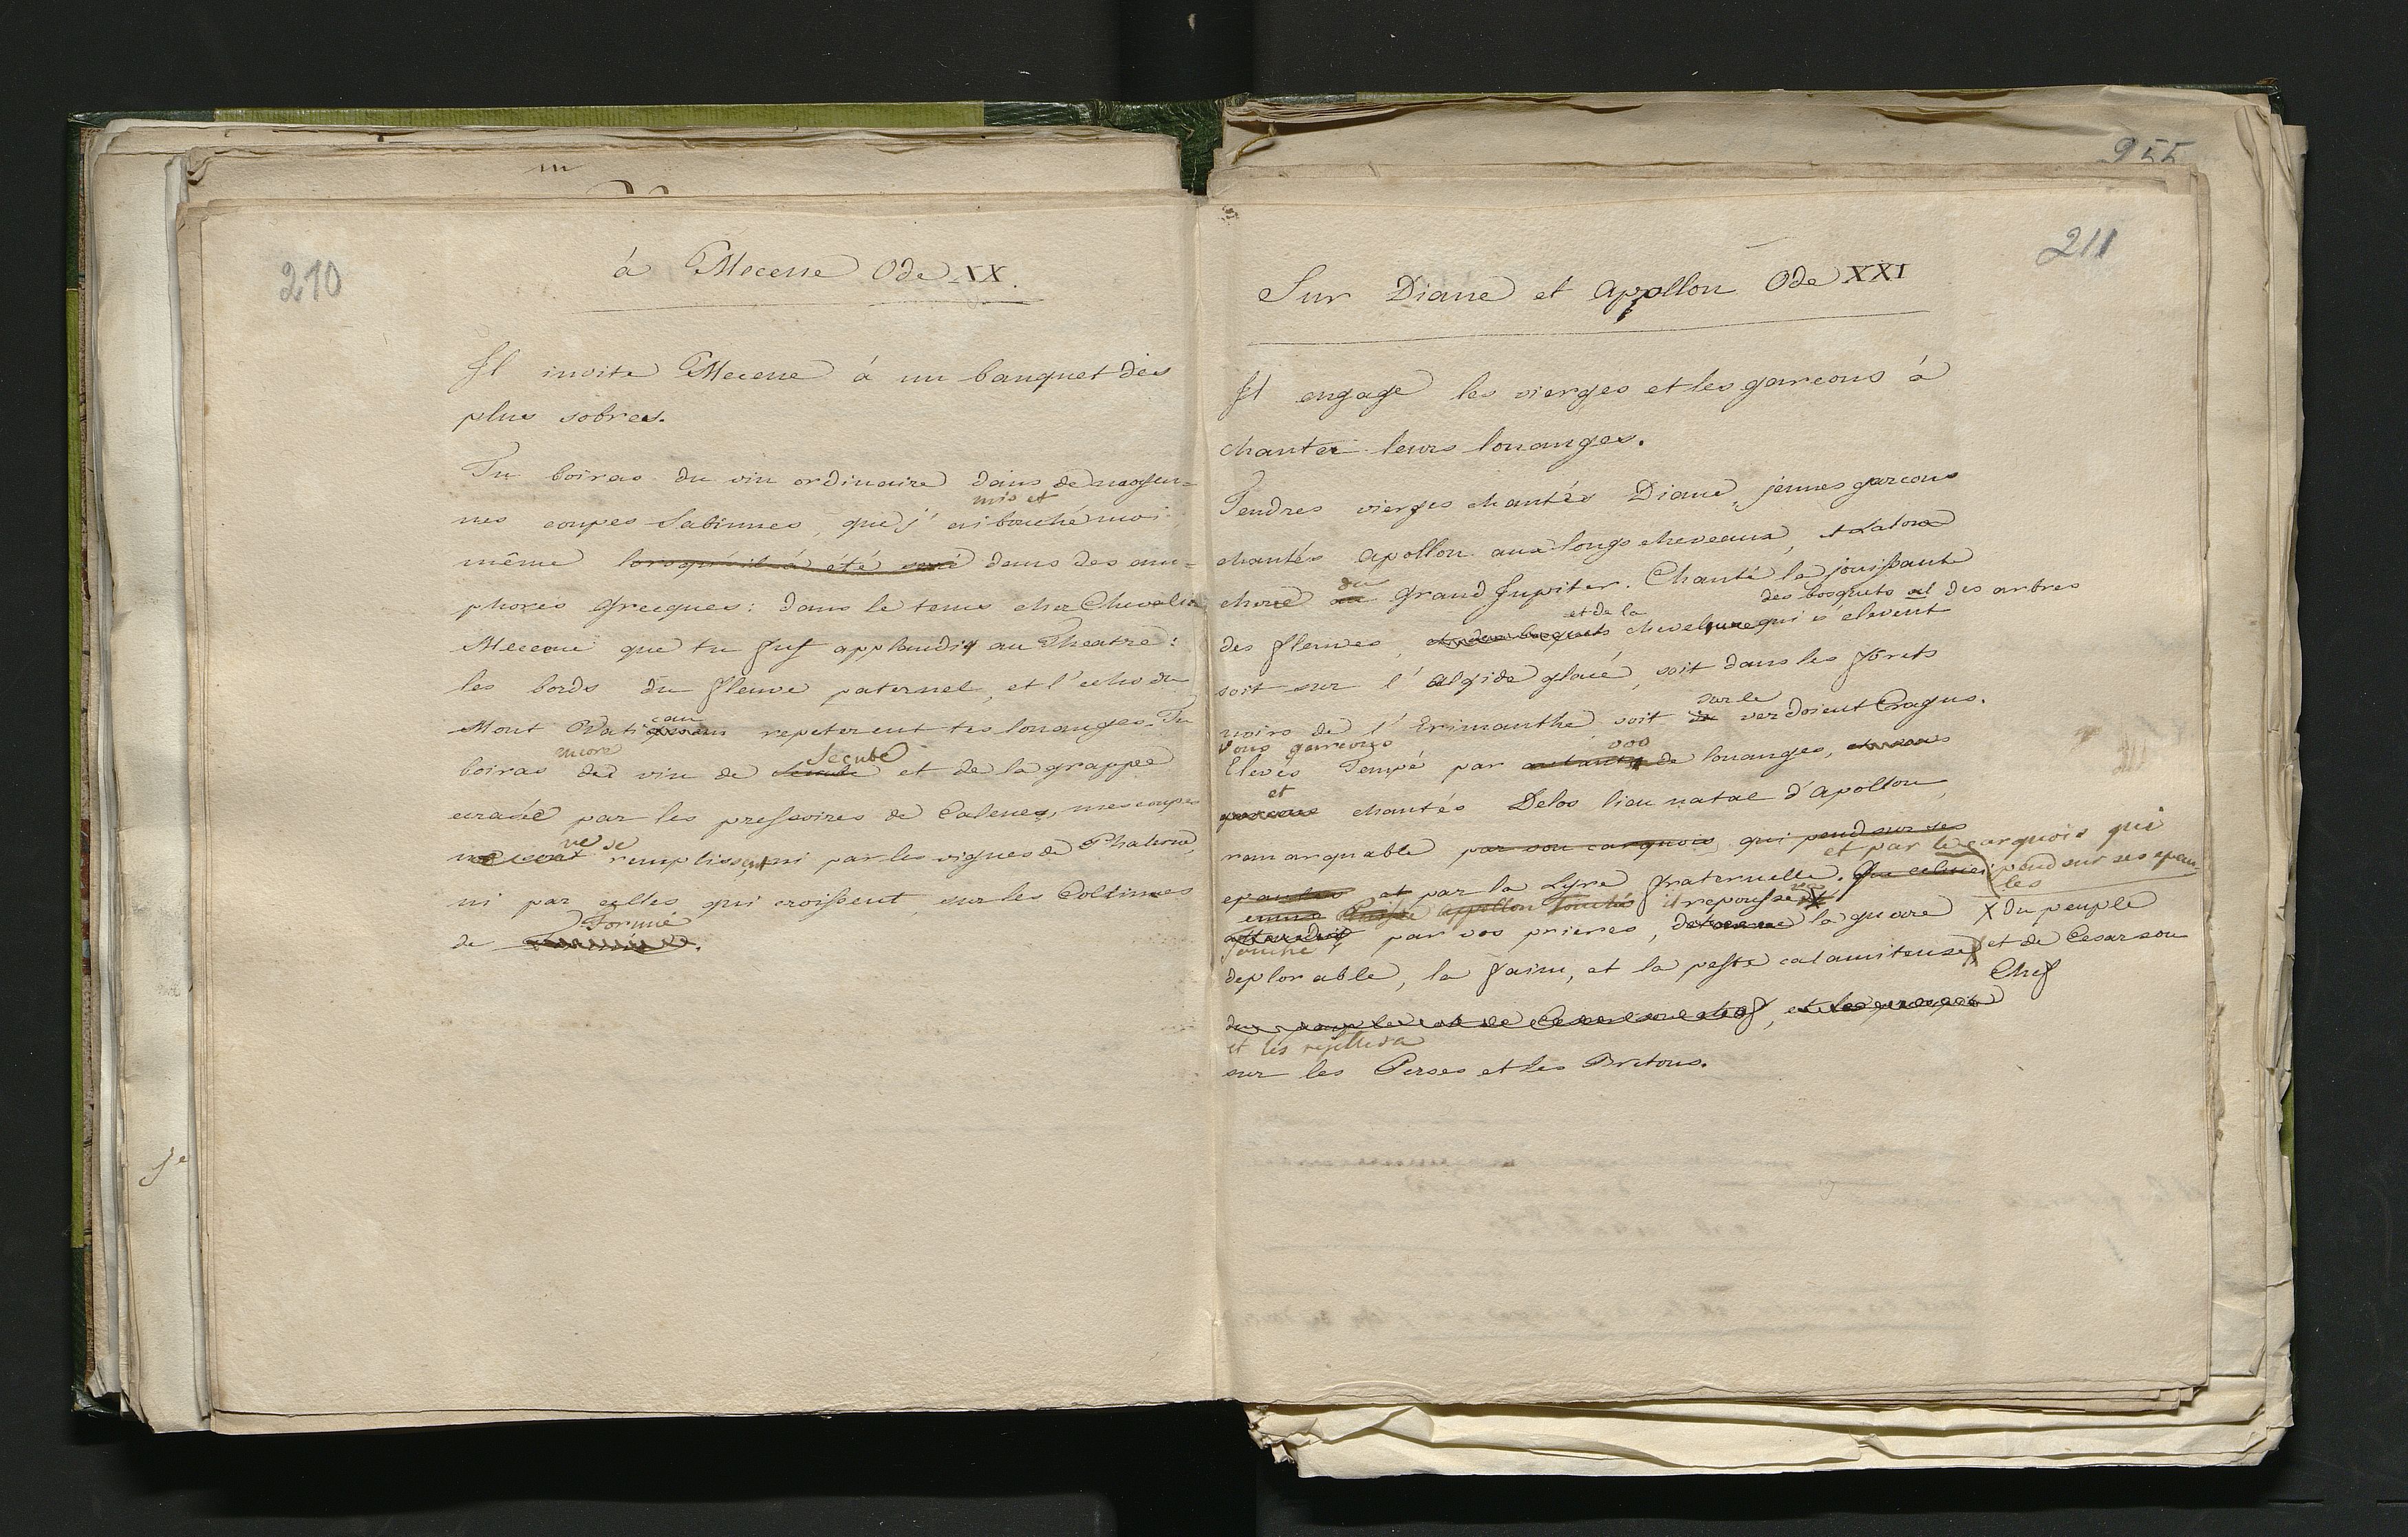 210
à Mecene Ode XX.
Il invite Mecene à un banquet des
plus sobres.
Tu boiras du vin ordinaire dans de moyen=
mis et
nes coupes Sabinnes, que j'ai bouché moi
même lorsqu'il a été dans des am=
phores Grecques: dans le tems cher Chevalier
Mecene que tu fus applaudis au Theatre:
les bords du fleuve paternel, et l'echo du
can
Mont Vati repeterent tes louanges. Tu
encore Secube
boiras de vin de et de la grappe
ecrasée par les pressoires de Calenes, mes coupes
ne se
remplissent ni par les vignes de Phalerne,
ni par celles qui croissent sur les Collines
Formie
de .
955
211
Sur Diane et Apollon Ode XXI
Il engage les vierges et les garcons à
chanter leurs louanges.
Tendres vierges chantés Diane, jeunes garcons
chantés Apollon aux longs cheveaux, et Latone
du
chere au Grand Jupiter. Chanté la jouissante
des bosquets et des arbres
et de la
des fleuves, et des bosquets chevelure qui s'elevent
soit sur l'Algide glacé, soit dans les fôrets
sur le
noirs de l'Erimanthe soit verdoient Cragus.
Vous garcons vos
Elevés Tempé par autant de louanges, et vous
et
garcons chantés Delos lieu natal d'Apollon,
remarquable par son carquois qui pend sur ses
et par le carquois qui
epaules et par la Lyre fraternelle. pend sur ses epau
les
Apollon touché il repousse X
par vos prieres, detourne la guerre X du peuple
Touché
deplorable, la faim, et la peste calamiteuse et de Cesar son
Chef
du peuple et de Cesar son chef, et les
et les rejettera
sur les Perses et les Bretons.